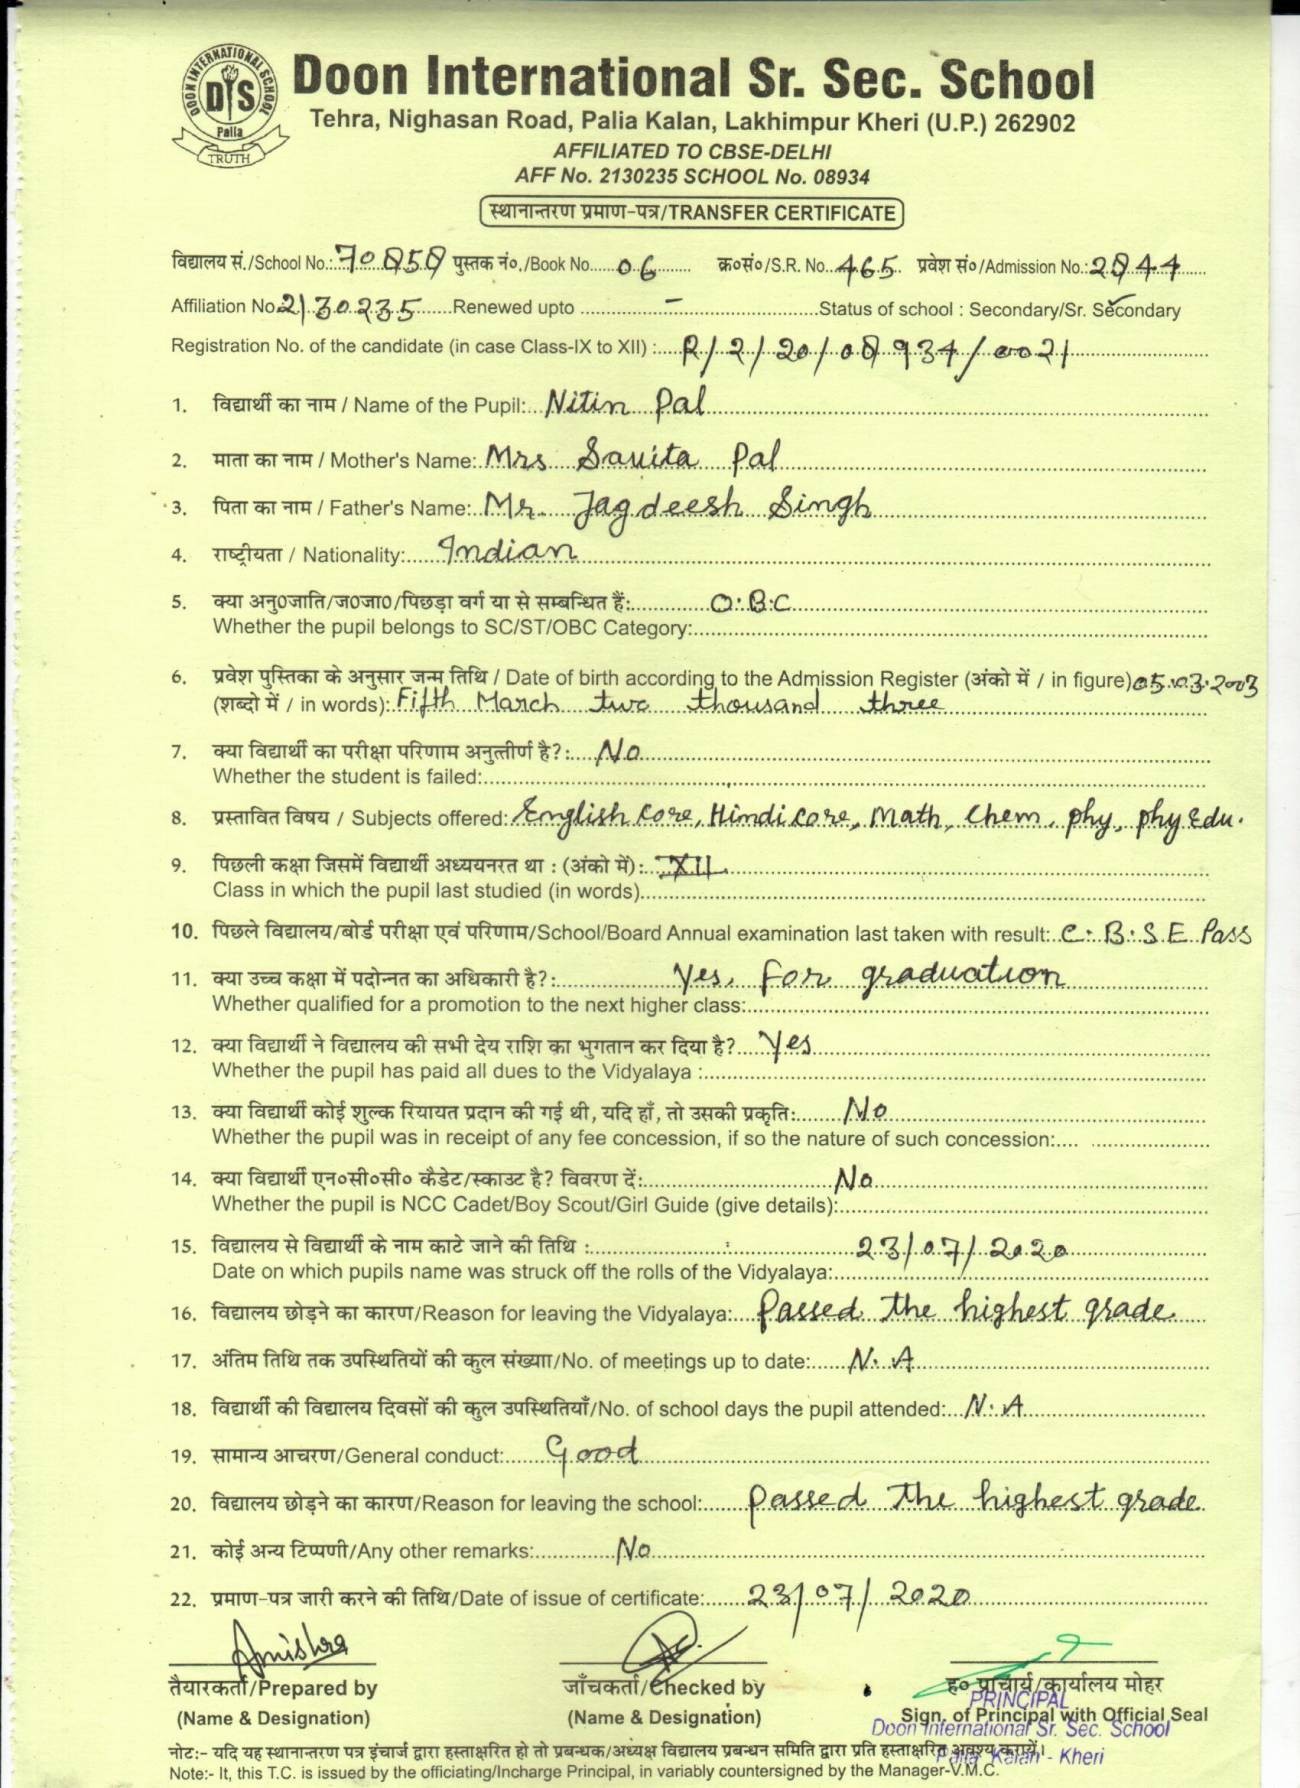 DOON INTERNATIONAL SCHOOL
DIS
Palia
TRUTH
Doon International Sr. Sec. School
Tehra, Nighasan Road, Palia Kalan, Lakhimpur Kheri (U.P.) 262902
AFFILIATED TO CBSE-DELHI
AFF No. 2130235 SCHOOL No. 08934
स्थानान्तरण प्रमाण-पत्र/TRANSFER CERTIFICATE
विद्यालय सं./School No.: 70858 पुस्तक नं०./Book No. 06 क्र०सं०/S.R. No. 465 प्रवेश सं०/Admission No.: 2844
Affiliation No. 2130235 Renewed upto - Status of school : Secondary/Sr. Secondary
Registration No. of the candidate (in case Class-IX to XII) : R/2/20/08934/0021
1. विद्यार्थी का नाम / Name of the Pupil: Nitin Pal
2. माता का नाम / Mother's Name: Mrs Savita Pal
3. पिता का नाम / Father's Name: Mr. Jagdeesh Singh
4. राष्ट्रीयता / Nationality: Indian
5. क्या अनु0जाति/ज0जा0/पिछड़ा वर्ग या से सम्बन्धित हैं: O.B.C
Whether the pupil belongs to SC/ST/OBC Category:
6. प्रवेश पुस्तिका के अनुसार जन्म तिथि / Date of birth according to the Admission Register (अंको में / in figure) 05.03.2003
(शब्दो में / in words): Fifth March two thousand three
7. क्या विद्यार्थी का परीक्षा परिणाम अनुत्तीर्ण है?: No
Whether the student is failed:
8. प्रस्तावित विषय / Subjects offered: English core, Hindi core, Math, Chem, phy, phy Edu.
9. पिछली कक्षा जिसमें विद्यार्थी अध्ययनरत था : (अंको में): XII
Class in which the pupil last studied (in words)
10. पिछले विद्यालय/बोर्ड परीक्षा एवं परिणाम/School/Board Annual examination last taken with result: C.B.S.E Pass
11. क्या उच्च कक्षा में पदोन्नत का अधिकारी है?: Yes, for graduation
Whether qualified for a promotion to the next higher class:
12. क्या विद्यार्थी ने विद्यालय की सभी देय राशि का भुगतान कर दिया है? Yes
Whether the pupil has paid all dues to the Vidyalaya :
13. क्या विद्यार्थी कोई शुल्क रियायत प्रदान की गई थी, यदि हाँ, तो उसकी प्रकृति: No
Whether the pupil was in receipt of any fee concession, if so the nature of such concession:
14. क्या विद्यार्थी एन०सी०सी० कैडेट/स्काउट है? विवरण दें: No
Whether the pupil is NCC Cadet/Boy Scout/Girl Guide (give details):
15. विद्यालय से विद्यार्थी के नाम काटे जाने की तिथि : 23/07/2020
Date on which pupils name was struck off the rolls of the Vidyalaya:
16. विद्यालय छोड़ने का कारण/Reason for leaving the Vidyalaya: Passed the highest grade
17. अंतिम तिथि तक उपस्थितियों की कुल संख्याा/No. of meetings up to date: N.A
18. विद्यार्थी की विद्यालय दिवसों की कुल उपस्थितियाँ/No. of school days the pupil attended: N.A
19. सामान्य आचरण/General conduct: Good
20. विद्यालय छोड़ने का कारण/Reason for leaving the school: passed the highest grade
21. कोई अन्य टिप्पणी/Any other remarks: No
22. प्रमाण-पत्र जारी करने की तिथि/Date of issue of certificate: 23/07/2020
तैयारकर्ता/Prepared by जाँचकर्ता/Checked by ह० प्राचार्य/कार्यालय मोहर
PRINCIPAL
(Name & Designation) (Name & Designation) Sign. of Principal with Official Seal
Doon International Sr. Sec. School
नोट:- यदि यह स्थानान्तरण पत्र इंचार्ज द्वारा हस्ताक्षरित हो तो प्रबन्धक/अध्यक्ष विद्यालय प्रबन्धन समिति द्वारा प्रति हस्ताक्षरित अवश्य करायें।
Palia Kalan - Kheri
Note:- It, this T.C. is issued by the officiating/Incharge Principal, in variably countersigned by the Manager-V.M.C.